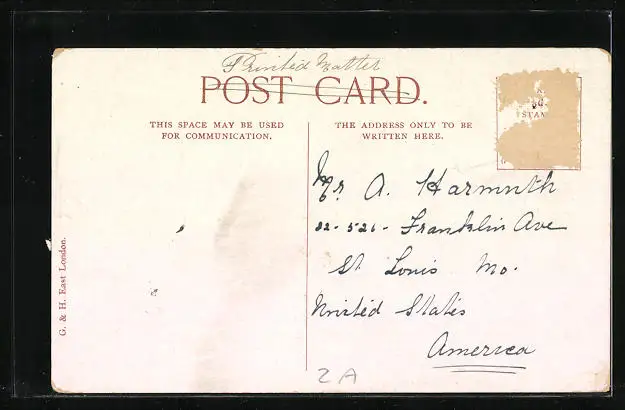 Printed Matter
POST CARD.
THIS SPACE MAY BE USED
FOR COMMUNICATION.
THE ADDRESS ONLY TO BE
WRITTEN HERE.
STAM
Mr. A. Harmuth
Franklin Ave
St Louis Mo.
United States
America
G. & H. East London.
ZA